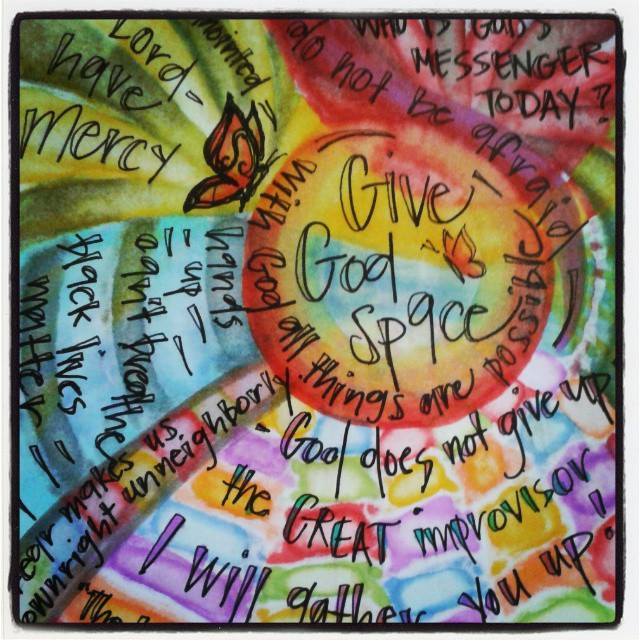 Lord-
have
mercy
anointed
WHO IS God's
MESSENGER
TODAY?
do not be afraid
Give
God
space
with God all things are possible
hands
up
can't breathe
black lives
matter
fear makes us
downright unneighborly
God does not give up
the GREAT improvisor
I will gather you up!